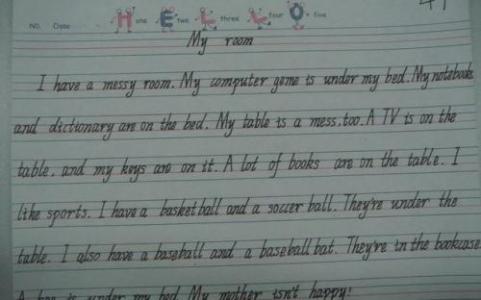 NO. Date HELLO one two three four five
My room
I have a messy room. My computer game is under my bed. My notebook
and dictionary are on the bed. My table is a mess, too. A TV is on the
table, and my keys are on it. A lot of books are on the table. I
like sports. I have a basketball and a soccer ball. They're under the
table. I also have a baseball and a baseball bat. They're in the bookcase.
is under my bed. My mother isn't happy!